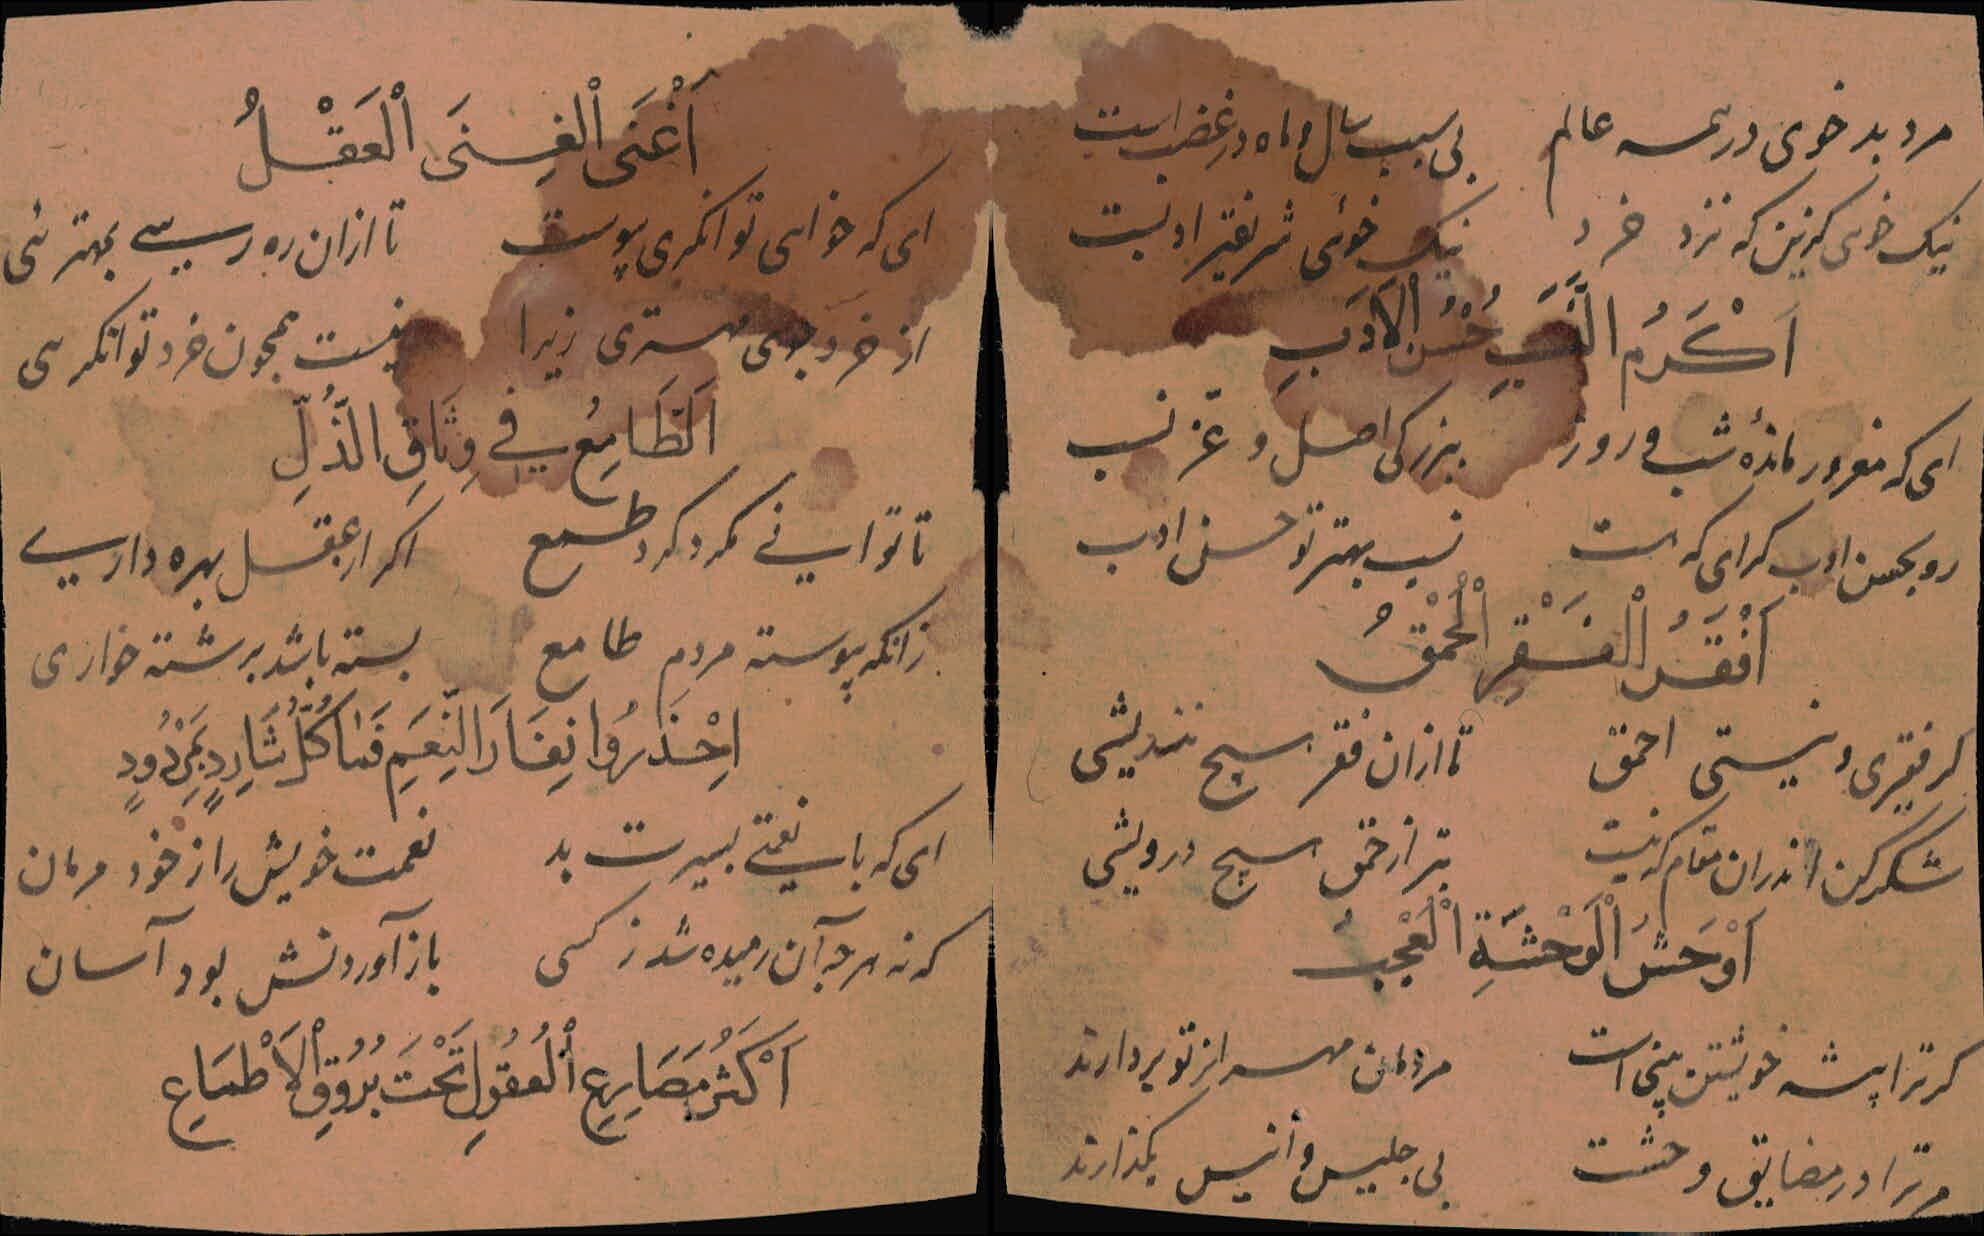 مرد بد خوی در همه عالم بی سبب سال و ماه در غضب است
نیک خوی کزین که نزد خرد نیک خوئی شریفتر ادبست
اَكْرَمُ النَّسَبِ حُسْنُ الْاَدَبِ
ای که مغرور مانده‌ٔ شب و روز ببزرکی اصل و عزّ نسب
رو بحسن ادب کرای که هست نسب بهتر تو حسن ادب
اَفْقَرُ الْفَقْرِ الْحُمْقُ
کر فقیری و نیستی احمق تا ازان فقر هیچ نندیشی
شکر کن اندران مقام که نیست بتر از حمق هیچ درویشی
اَوْحَشُ الْوَحْشَةِ الْعُجْبُ
کر ترا پیشه خویشتن بینی است مردمان مهر از تو بردارند
مر ترا در مضایق وحشت بی جلیس و انیس بکذارند
اَغْنَى الْغِنَى الْعَقْلُ
ای که خواهی توانکری پیوست تا ازان ره رسی بمهتر ئی
از خرد جوی مهتری زیرا نیست همچون خرد توانکر ئی
اَلطَّامِعُ فِي وِثَاقِ الذُّلِّ
تا توانی مکرد کرد طمع اکر از عقل بهره داری
زانکه پیوسته مردم طامع بسته باشد برشته خواری
اِحْذَرُوا نِفَارَ النِّعَمِ فَمَا كُلُّ شَارِدٍ بِمَرْدُودٍ
ای که با نعمتی بسیرت بد نعمت خویش را ز خود مرمان
که نه هرچه آن رمیده شد ز کسی باز آوردنش بود آسان
اَكْثَرُ مَصَارِعِ الْعُقُولِ تَحْتَ بُرُوقِ الْاَطْمَاعِ